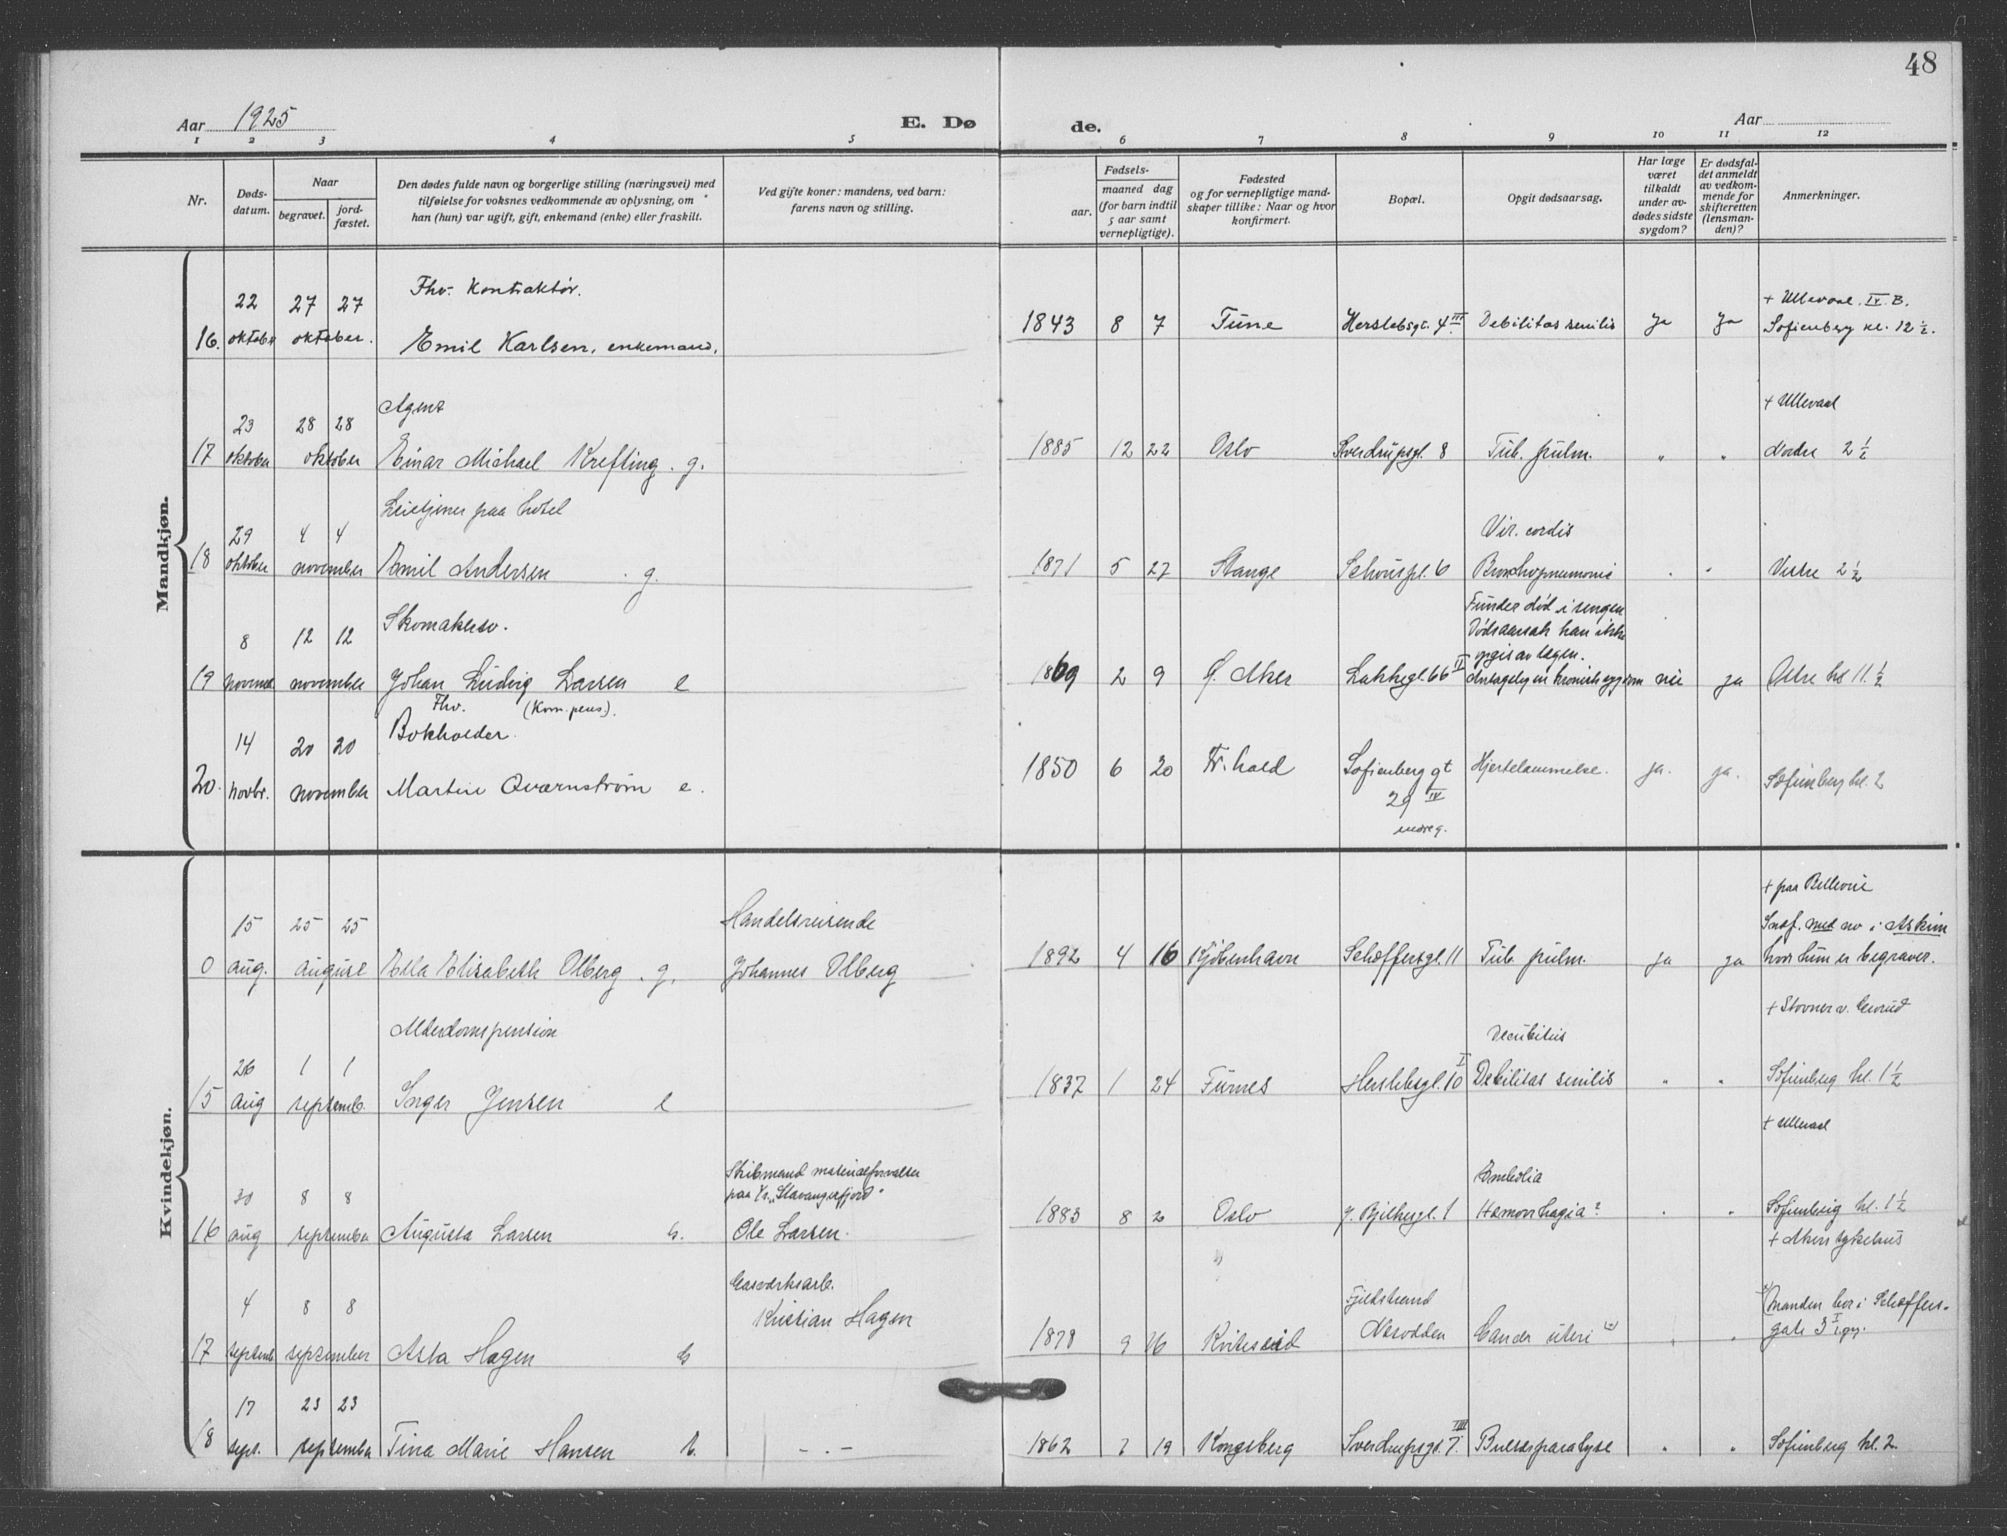 48
Aar 1925
E. Dø
de.
Aar
1 2 3 4 5 6 7 8 9 10 11 12
Nr.
Døds-
datum.
Naar
begravet.
jord-
fæstet.
Den dødes fulde navn og borgerlige stilling (næringsvei) med
tilføielse for voksnes vedkommende av oplysning, om
han (hun) var ugift, gift, enkemand (enke) eller fraskilt.
Ved gifte koner: mandens, ved barn:
farens navn og stilling.
Fødsels-
aar.
maaned dag
(for barn indtil
5 aar samt
vernepligtige).
Fødested
og for vernepligtige mand-
skaper tillike: Naar og hvor
konfirmert.
Bopæl.
Opgit dødsaarsag.
Har læge
været
tilkaldt
under av-
dødes sidste
sygdom?
Er dødsfal-
det anmeldt
av vedkom-
mende for
skifteretten
(lensman-
den)?
Anmerkninger.
Mandkjøn.
22 27 27 Fhv. Kontraktør. + Ullevaal. IV. B.
16. oktober oktober. Emil Karlsen, enkemand, 1843 8 7 Tune Herslebsgt. 4 III Debilitas senilis ja ja Sofienberg kl. 12 ½.
Agent + Ullevaal
23 28 28
17 oktober oktober Einar Michael Krefting. g. 1885 12 22 Oslo Sverdrupsgt. 8 Tub. pulm. " " Nordre 2 ½
paa hotel
29 4 4 Vit. cordis
18 oktober november Emil Andersen. g. 1871 5 27 Stange Schouspl. 6 Bronchopneumoni " " Vestre 2 ½
Skomakersv. Fundet død i sengen
8 12 12 Dødsaarsak kan ikke
opgis av lægen.
19 novemb. november Johan Ludvig Larsen e 1869 2 9 Ø. Aker Lakkegt. 66 II Antagelig en kronisk sygdom nei ja Østre kl 11 ½
Fhv. (Kom. pens.).
14 20 20 Bokholder.
20. novbr. november Martin Qvarnstrøm e. 1850 6 20 Fr. hald Sofienberg gt Hjertelammelse. ja. ja. Sofienberg kl. 2
29 IV
Kvindekjøn.
+ paa Bellevue
15 25 25 Handelsreisende med no i Askim
0 aug. august Ella Elisabeth Olberg. g. Johannes Olberg 1892 4 16 Kjøbenhavn Schæffersgt. 11 Tub. pulm. ja ja hvor hun er begravet.
Alderdomspension Decubitus + Stovner v.
26 1 1
15 aug septemb. Inger Jensen e 1837 1 24 Furnes Herslebsgt. 10 I Debilitas senilis " " Sofienberg kl. 1 ½
+ Ullevaal
Skibsmand materialforvalter
30 8 8 paa "Stavangerfjord" Embolia
16 aug september Augusta Larsen g. Ole Larsen. 1883 8 2 Oslo g. Bjelkesgt. 1 Hæmorrhagia? " " Sofienberg kl. 1 ½
+ Akers sykehus
4 8 8 Gasverksarb. Fjeldstrand
Kristian Hagen Manden bor i Schæffers-
17 septemb. september Asta Hagen g 1878 9 26 Kviteseid Nesodden Cancer uteri " " gate 3 I
17 23 23
18 sept. september Tina Marie Hansen g. - . - 1862 7 19 Kongsberg Sverdrupsgt. 7 III Bulbærparalyse " " Sofienberg kl. 2